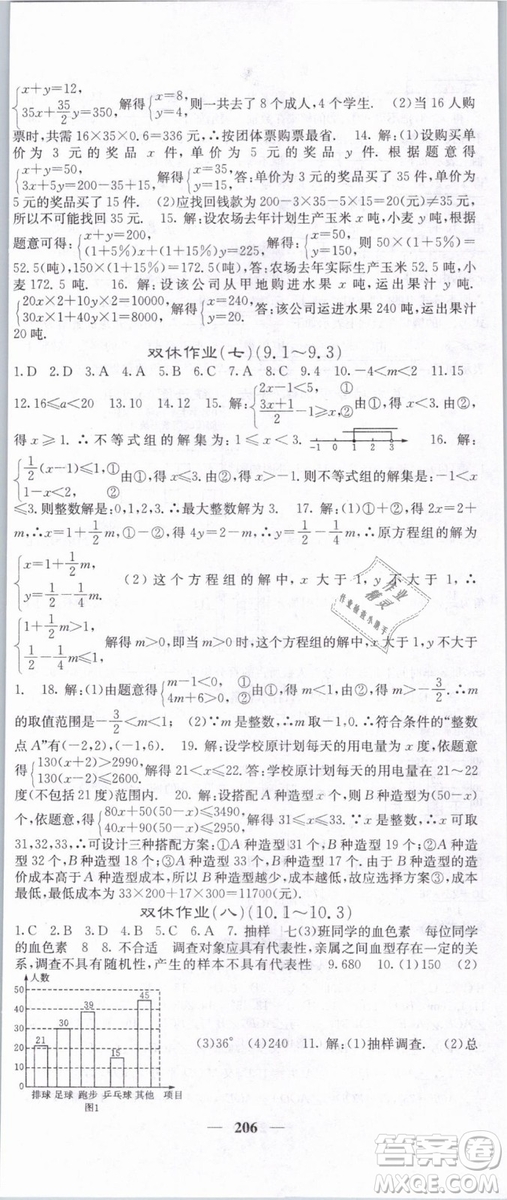 {x+y=12, 35x+35/2 y=350, 解得{x=8, y=4, 则一共去了 8 个成人,4 个学生. (2)当 16 人购
票时,共需 16×35×0.6=336 元 ∴ 按团体票购票最省. 14. 解:(1)设购买单
价为 3 元的奖品 x 件,这里单价为 5 元的奖品 y 件. 根据题意得
{x+y=50, 3x+5y=200-35+15, 解得{x=35, y=15, 答:单价为 3 元的奖品买了 35 件,单价为
5 元的奖品买了 15 件. (2)应找回钱款为 200-3×35-5×15=20(元)≠35 元,
所以不可能找回 35 元. 15. 解:设农场去年计划生产玉米 x 吨,小麦 y 吨.根据
题意可得:{x+y=200, (1+5%)x+(1+15%)y=225, 解得{x=50, y=150, ∴50×(1+5%)=
52.5(吨),150×(1+15%)=172.5(吨),答:农场去年实际生产玉米 52.5 吨,小
麦 172.5 吨. 16. 解:设该公司从甲地购进水果 x 吨,运出果汁 y 吨,得
{20x×2+10y×2=10000, 30x×10+20y×12=76800, 解得{x=240, y=20, 答:该公司运进水果 240 吨,运出果汁
20 吨.
双休作业(七)(9.1~9.3)
1.D 2.D 3.C 4.A 5.D 6.B 7.C 8.A 9.A 10.-4<m<2 11.15
12.16≤a<20 13.10 14.12 15. 解:{2x-1<5, ① (3x+1)/2-1≥x, ② 由①,得 x<3,由②,
得 x≥1. ∴ 不等式组的解集为:1≤x<3. -1 0 1 2 3 16. 解:
{1/2(x-1)≤1, ① 1-x<2, ② 由①,得 x≤3,由②,得 x>-1. ∴ 不等式组的解集是:-1<x
≤3,则整数解是:0,1,2,3. 17. 解:(1){x+2y=2, ① x-2y=m, ② ①+②,得 2x=2+
m,∴x=1+1/2 m,①-②,得 4y=2-m,∴y=1/2-1/4 m. ∴原方程组的解为
{x=1+1/2 m, y=1/2-1/4 m. (2)这个方程组的解中,x 大于 1,y 不小于-1,∴
{1+1/2 m>1, 1/2-1/4 m≥-1, 解得 0<m≤6,当 m>0 时,这个方程组的解中,x 大于 1,y 不小于-
1. 18. 解:(1)由题意得{m-1<0, ① 4m+6>0, ② 由①得 m<1. 由②得 m>-3/2. ∴m
的取值范围是-3/2<m<1. (2)∵m 是整数,∴m 取-1,0. ∴符合条件的“整数
点 A”有(-2,2),(-1,6). 19. 解:设学校原计划每天的用电量为 x 度,依题意得
{130(x+2)>2990, 130(x-2)≤2600. 解得 21<x≤22. 答:学校原计划每天的用电量在 21~22
度(不包括 21 度)范围内. 20. 解:设搭配 A 种造型 x 个,则 B 种造型为(50-x)
个,依题意,得{80x+50(50-x)≤3490, 40x+90(50-x)≤2950, 解得 31≤x≤33. ∵x 是整数,∴x 可取
31,32,33,∴可设计三种搭配方案:①A 种造型 31 个,B 种造型 19 个;②A 种造
型 32 个,B 种造型 18 个;③A 种造型 33 个,B 种造型 17 个. (2)由于 B 种造型的
造价成本高于 A 种造型成本. 所以 B 种造型越少,成本越低,故应选择方案③,成本
最低,最低成本为 33×200+17×300=11700(元).
双休作业(八)(10.1~10.3)
1.C 2.D 3.A 4.B 5.C 6.A 7. 抽样 七(3)班同学的血色素 每位同学
的血色素 8 8. 不合适 调查对象应具有代表性,亲属之间血型存在一定的关
系,调查不具有随机性,产生的样本不具有代表性 9.680 10.(1)150 (2)
人数
50
40
30
20
10
0
21 30 39 15 45
排球 足球 跑步 乒乓球 其他 项目
图1
(3)36° (4)240 11. 解:(1)抽样调查. (2)总
206
作业精灵
答案圈